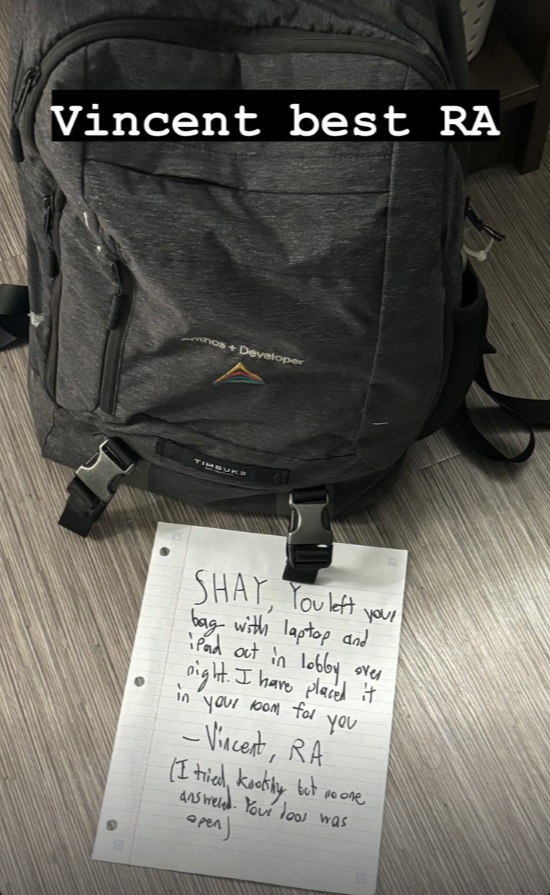 Vincent best RA
+ Developer
TIMBUK2
SHAY, You left your
bag with laptop and
iPad out in lobby over
night. I have placed it
in your room for you
- Vincent, RA
(I tried knocking but no one
answered. Your door was
open)